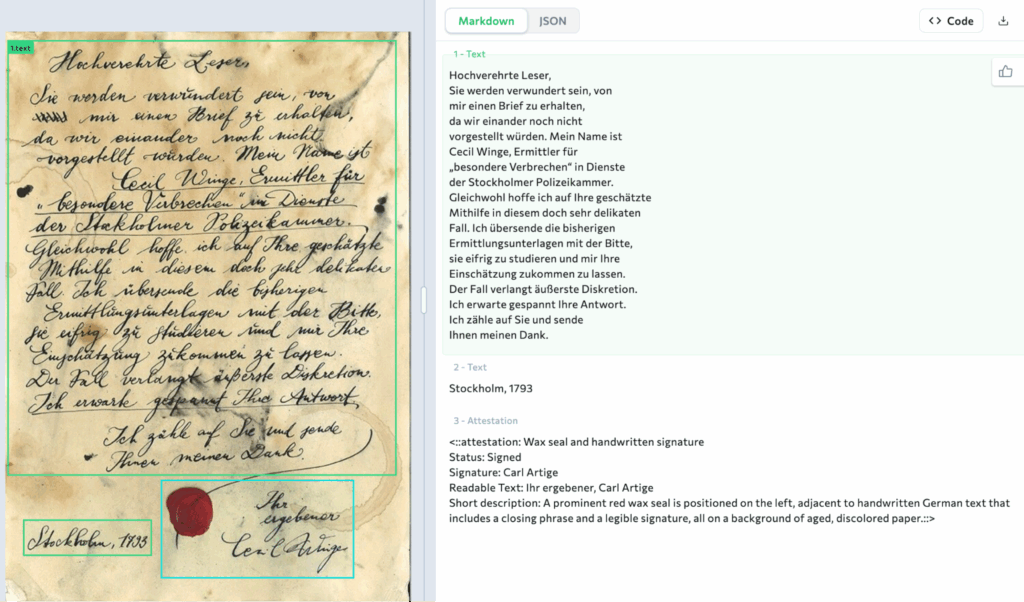 1.text
Hochverehrte Leser,
Sie werden verwundert sein, von
mir einen Brief zu erhalten,
da wir einander noch nicht
vorgestellt wurden. Mein Name ist
Cecil Winge, Ermittler für
„besondere Verbrechen“ in Dienste
der Stockholmer Polizeikammer.
Gleichwohl hoffe ich auf Ihre geschätzte
Mithilfe in diesem doch sehr delikaten
Fall. Ich übersende die bisherigen
Ermittlungsunterlagen mit der Bitte,
sie eifrig zu studieren und mir Ihre
Einschätzung zukommen zu lassen.
Der Fall verlangt äußerste Diskretion.
Ich erwarte gespannt Ihre Antwort.
Ich zähle auf Sie und sende
Ihnen meinen Dank.
Ihr
ergebener
Cecil Winge
Stockholm, 1793
Markdown
JSON
<> Code
1 - Text
Hochverehrte Leser,
Sie werden verwundert sein, von
mir einen Brief zu erhalten,
da wir einander noch nicht
vorgestellt würden. Mein Name ist
Cecil Winge, Ermittler für
„besondere Verbrechen“ in Dienste
der Stockholmer Polizeikammer.
Gleichwohl hoffe ich auf Ihre geschätzte
Mithilfe in diesem doch sehr delikaten
Fall. Ich übersende die bisherigen
Ermittlungsunterlagen mit der Bitte,
sie eifrig zu studieren und mir Ihre
Einschätzung zukommen zu lassen.
Der Fall verlangt äußerste Diskretion.
Ich erwarte gespannt Ihre Antwort.
Ich zähle auf Sie und sende
Ihnen meinen Dank.
2 - Text
Stockholm, 1793
3 - Attestation
<::attestation: Wax seal and handwritten signature
Status: Signed
Signature: Carl Artige
Readable Text: Ihr ergebener, Carl Artige
Short description: A prominent red wax seal is positioned on the left, adjacent to handwritten German text that
includes a closing phrase and a legible signature, all on a background of aged, discolored paper.::>